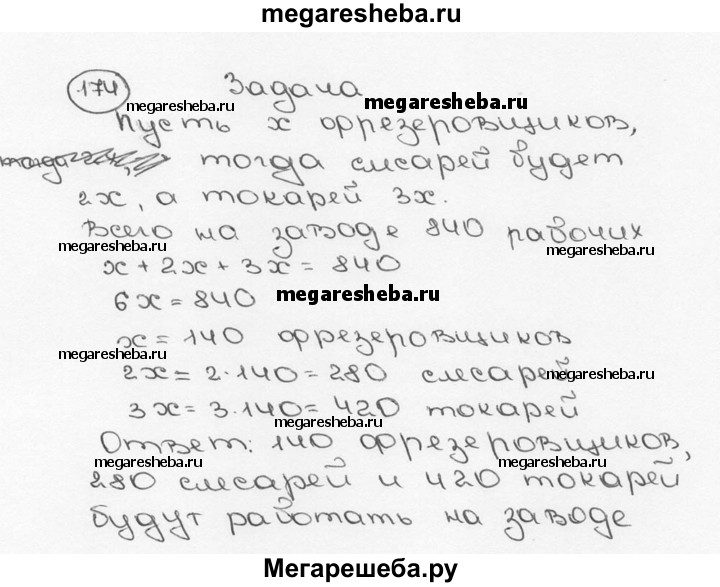 megaresheba.ru
174 Задача
megaresheba.ru megaresheba.ru
Пусть x фрезеровщиков,
тогда слесарей будет
2x, а токарей 3x.
Всего на заводе 840 рабочих
megaresheba.ru megaresheba.ru
x + 2x + 3x = 840
6x = 840 megaresheba.ru
x = 140 фрезеровщиков
megaresheba.ru
2x = 2·140 = 280 слесарей
megaresheba.ru
3x = 3·140 = 420 токарей
megaresheba.ru
Ответ: 140 фрезеровщиков,
megaresheba.ru megaresheba.ru
280 слесарей и 420 токарей
будут работать на заводе
Мегарешеба.ру